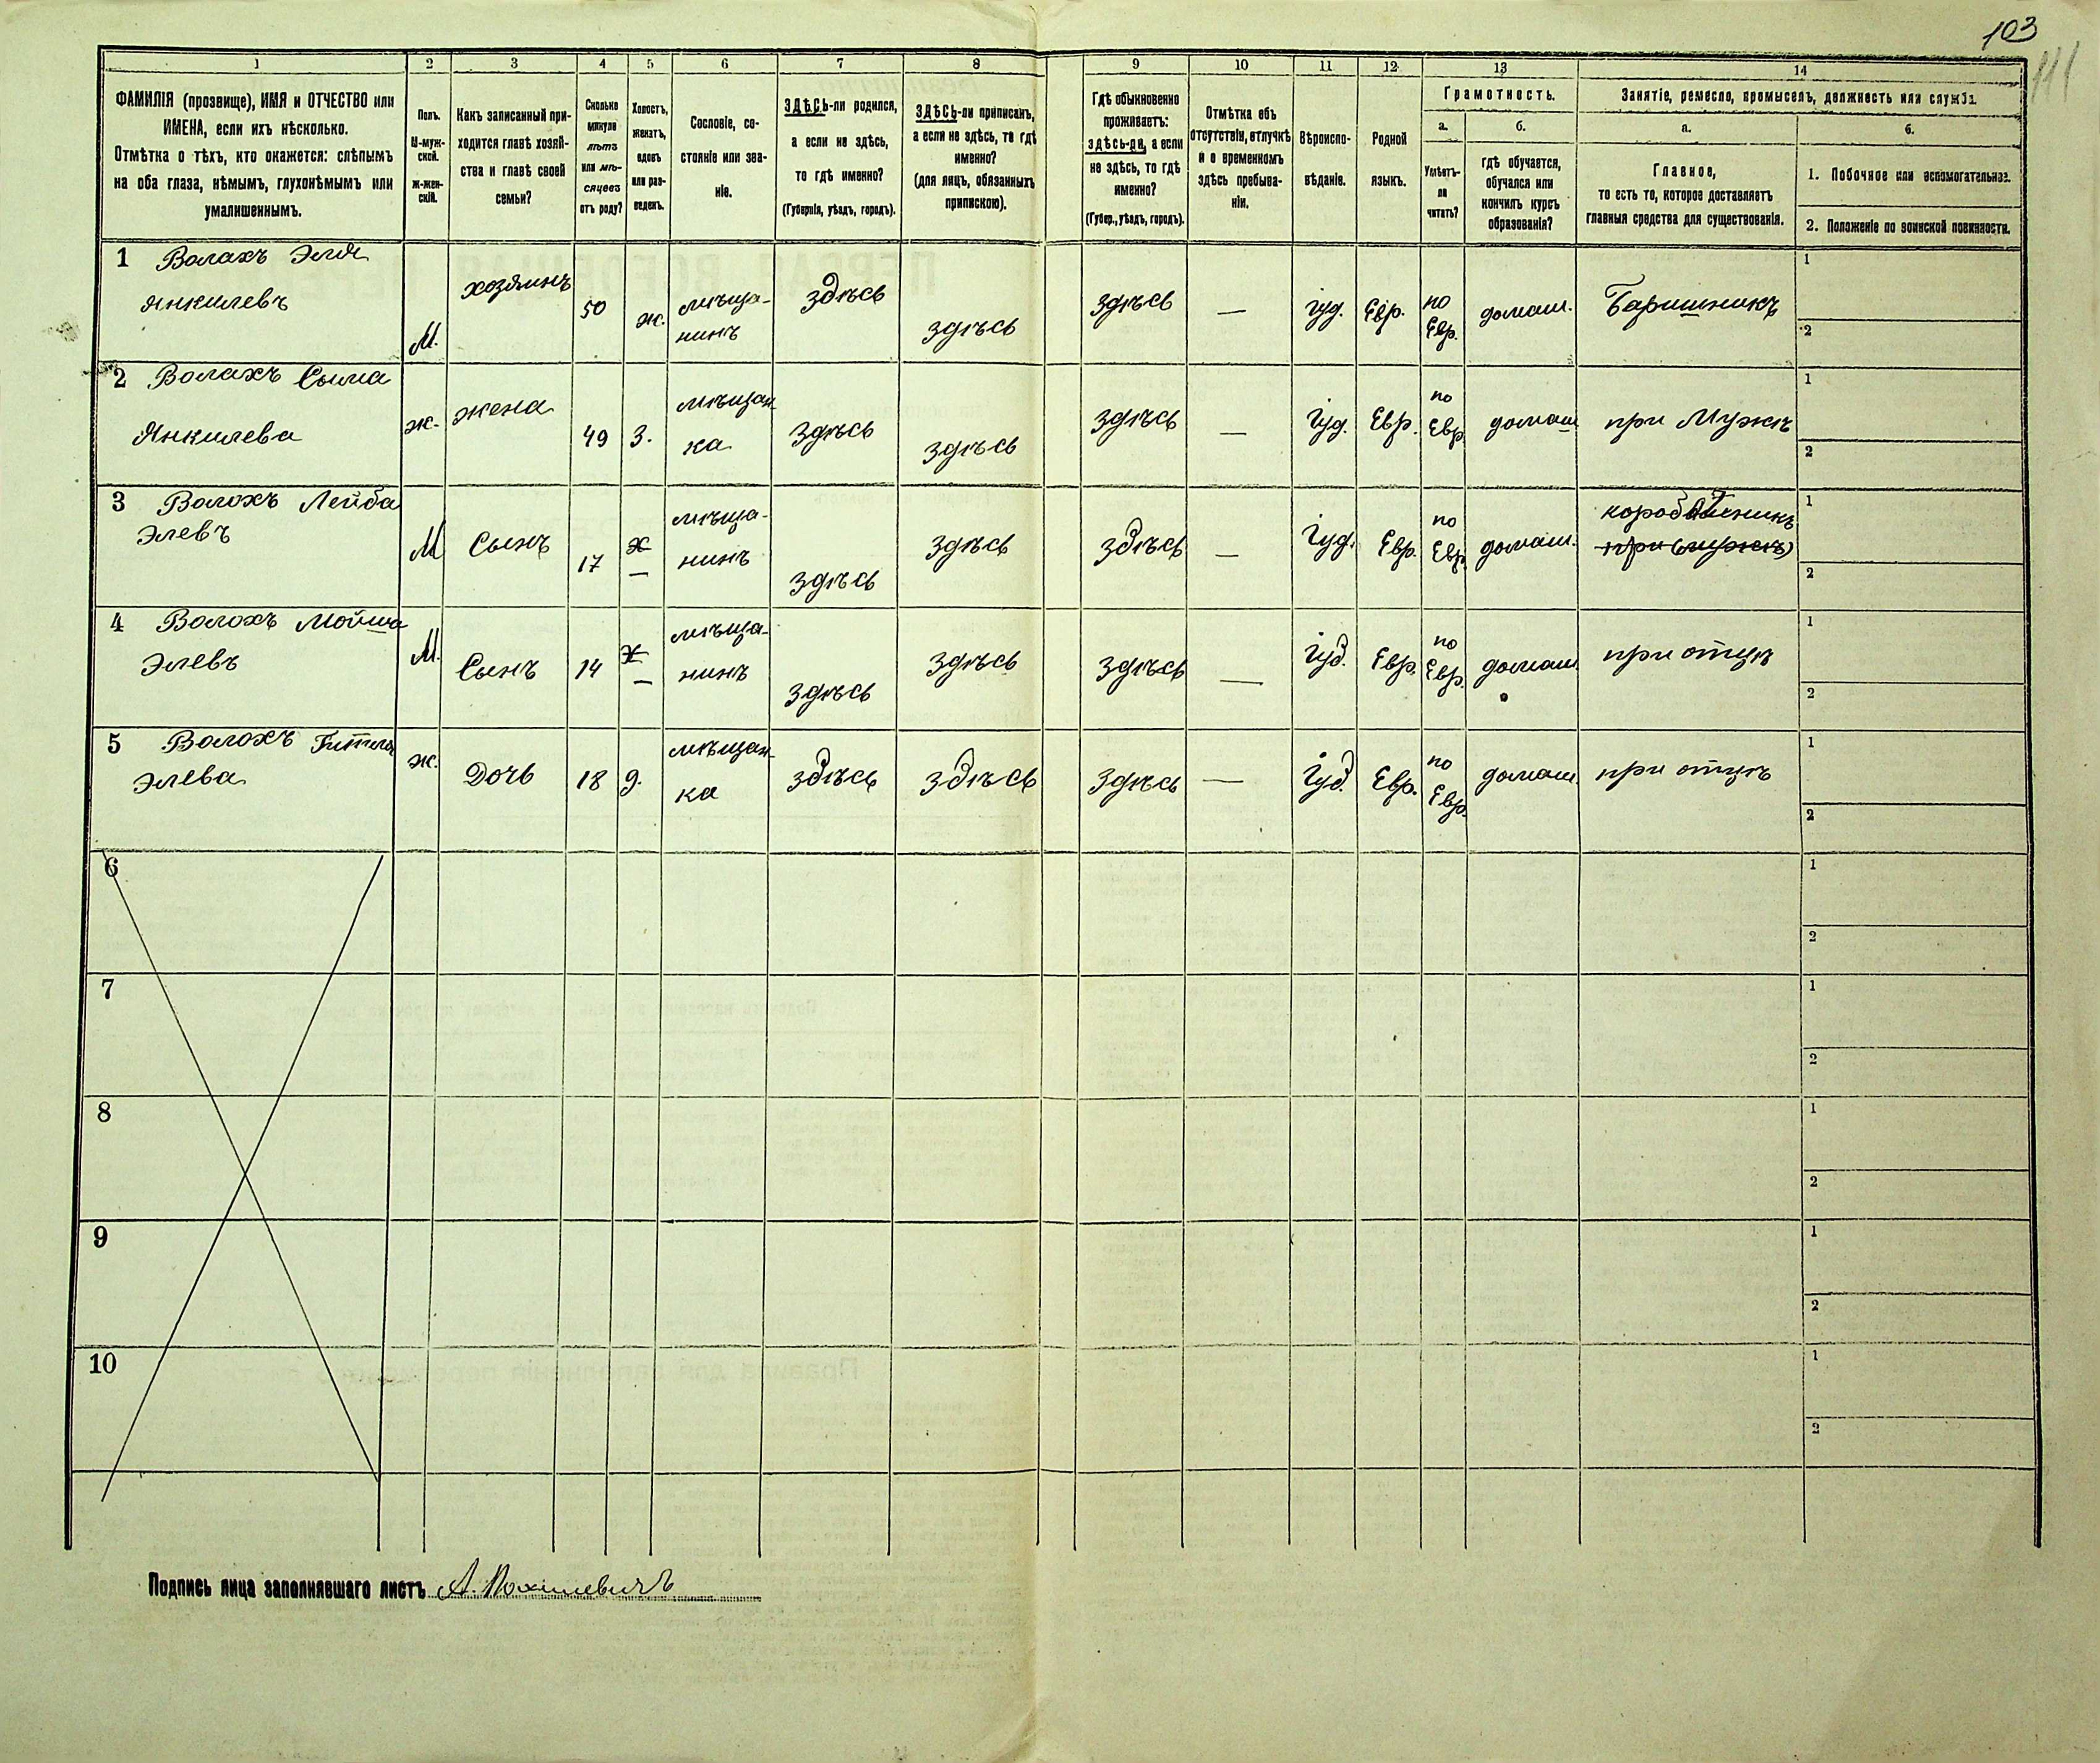 103
111
1 2 3 4 5 6 7 8 9 10 11 12 13 14
ФАМИЛІЯ (прозвище), ИМЯ и ОТЧЕСТВО или
ИМЕНА, если ихъ нѣсколько.
Отмѣтка о тѣхъ, кто окажется: слѣпымъ
на оба глаза, нѣмымъ, глухонѣмымъ или
умалишеннымъ.
Полъ.
М-муж-
ской.
Ж-жен-
скій.
Какъ записанный при-
ходится главѣ хозяй-
ства и главѣ своей
семьи?
Сколько
минуло
лѣтъ
или мѣ-
сяцевъ
отъ роду?
Холостъ,
женатъ,
вдовъ
или раз-
веденъ.
Сословіе, со-
стояніе или зва-
ніе.
ЗДѢСЬ-ли родился,
а если не здѣсь,
то гдѣ именно?
(Губернія, уѣздъ, городъ).
ЗДѢСЬ-ли приписанъ,
а если не здѣсь, то гдѣ
именно?
(для лицъ, обязанныхъ
припискою).
Гдѣ обыкновенно
проживаетъ:
здѣсь-ли, а если
не здѣсь, то гдѣ
именно?
(Губер., уѣздъ, городъ).
Отмѣтка объ
отсутствіи, отлучкѣ
и о временномъ
здѣсь пребыва-
ніи.
Вѣроиспо-
вѣданіе.
Родной
языкъ.
Грамотность.
а.
Умѣетъ-
ли
читать?
б.
гдѣ обучается,
обучался или
кончилъ курсъ
образованія?
Занятіе, ремесло, промыселъ, должность или служба.
а.
Главное,
то есть то, которое доставляетъ
главныя средства для существованія.
б.
1. Побочное или вспомогательное.
2. Положеніе по воинской повинности.
1 Волахъ Эля
Янкилевъ
М.
хозяинъ
50
ж.
мѣща-
нинъ
здѣсь
здѣсь
здѣсь
—
іуд.
Евр.
по
Евр.
домаш.
Баришникъ
1
2
2 Волахъ Сыма
Янкилева
ж.
жена
49
з.
мѣщан-
ка
здѣсь
здѣсь
здѣсь
—
іуд.
Евр.
по
Евр.
домаш
при Мужѣ
1
2
3 Волохъ Лейба
Элевъ
М
Сынъ
17
х
—
мѣща-
нинъ
здѣсь
здѣсь
здѣсь
—
іуд.
Евр.
по
Евр.
домаш.
при мужѣ
1
2
4 Волохъ Мойша
Элевъ
М.
Сынъ
14
х
—
мѣща-
нинъ
здѣсь
здѣсь
здѣсь
—
іуд.
Евр.
по
Евр.
домаш.
при отцѣ
1
2
5 Волохъ Гитля
Элева
ж.
Дочь
18
д.
мѣщан-
ка
здѣсь
здѣсь
здѣсь
—
іуд.
Евр.
по
Евр.
домаш.
при отцѣ
1
2
6
1
2
7
1
2
8
1
2
9
1
2
10
1
2
Подпись лица заполнявшаго листъ А.